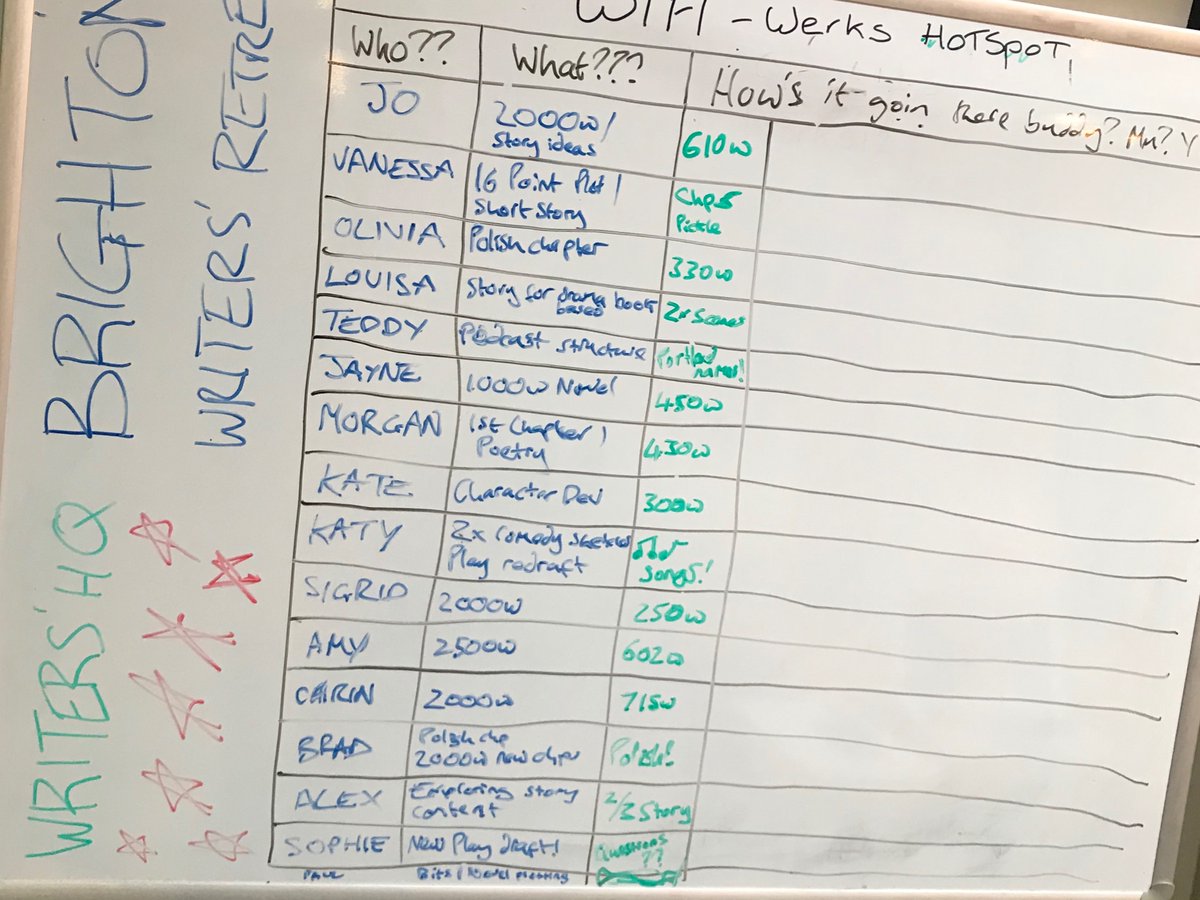 WIFI - Werks HOTSPOT,
BRIGHTON
WRITERS' RETRE
WRITERS' HQ
Who??
What???
How's it goin there buddy? Mm? Y
JO
2000w/
Story ideas
610w
VANESSA
16 Point Plot /
Short Story
Chp 5
Pickle
OLIVIA
Polish chapter
330w
LOUISA
Story for drama book
based
2x Scenes
TEDDY
Podcast structure
Portland
names!
JAYNE
1000w Novel
450w
MORGAN
1st Chapter /
Poetry
430w
KATE
Character Dev
300w
KATY
2x Comedy sketches
Play redraft
Songs!
SIGRID
2000w
250w
AMY
2500w
602w
CAIRIN
2000w
715w
BRAD
Polish chp
2000w new chper
Polish!
ALEX
Exploring story
content
2/3 Story
SOPHIE
New Play draft!
Questions
??
PAUL
Bits / Novel planning